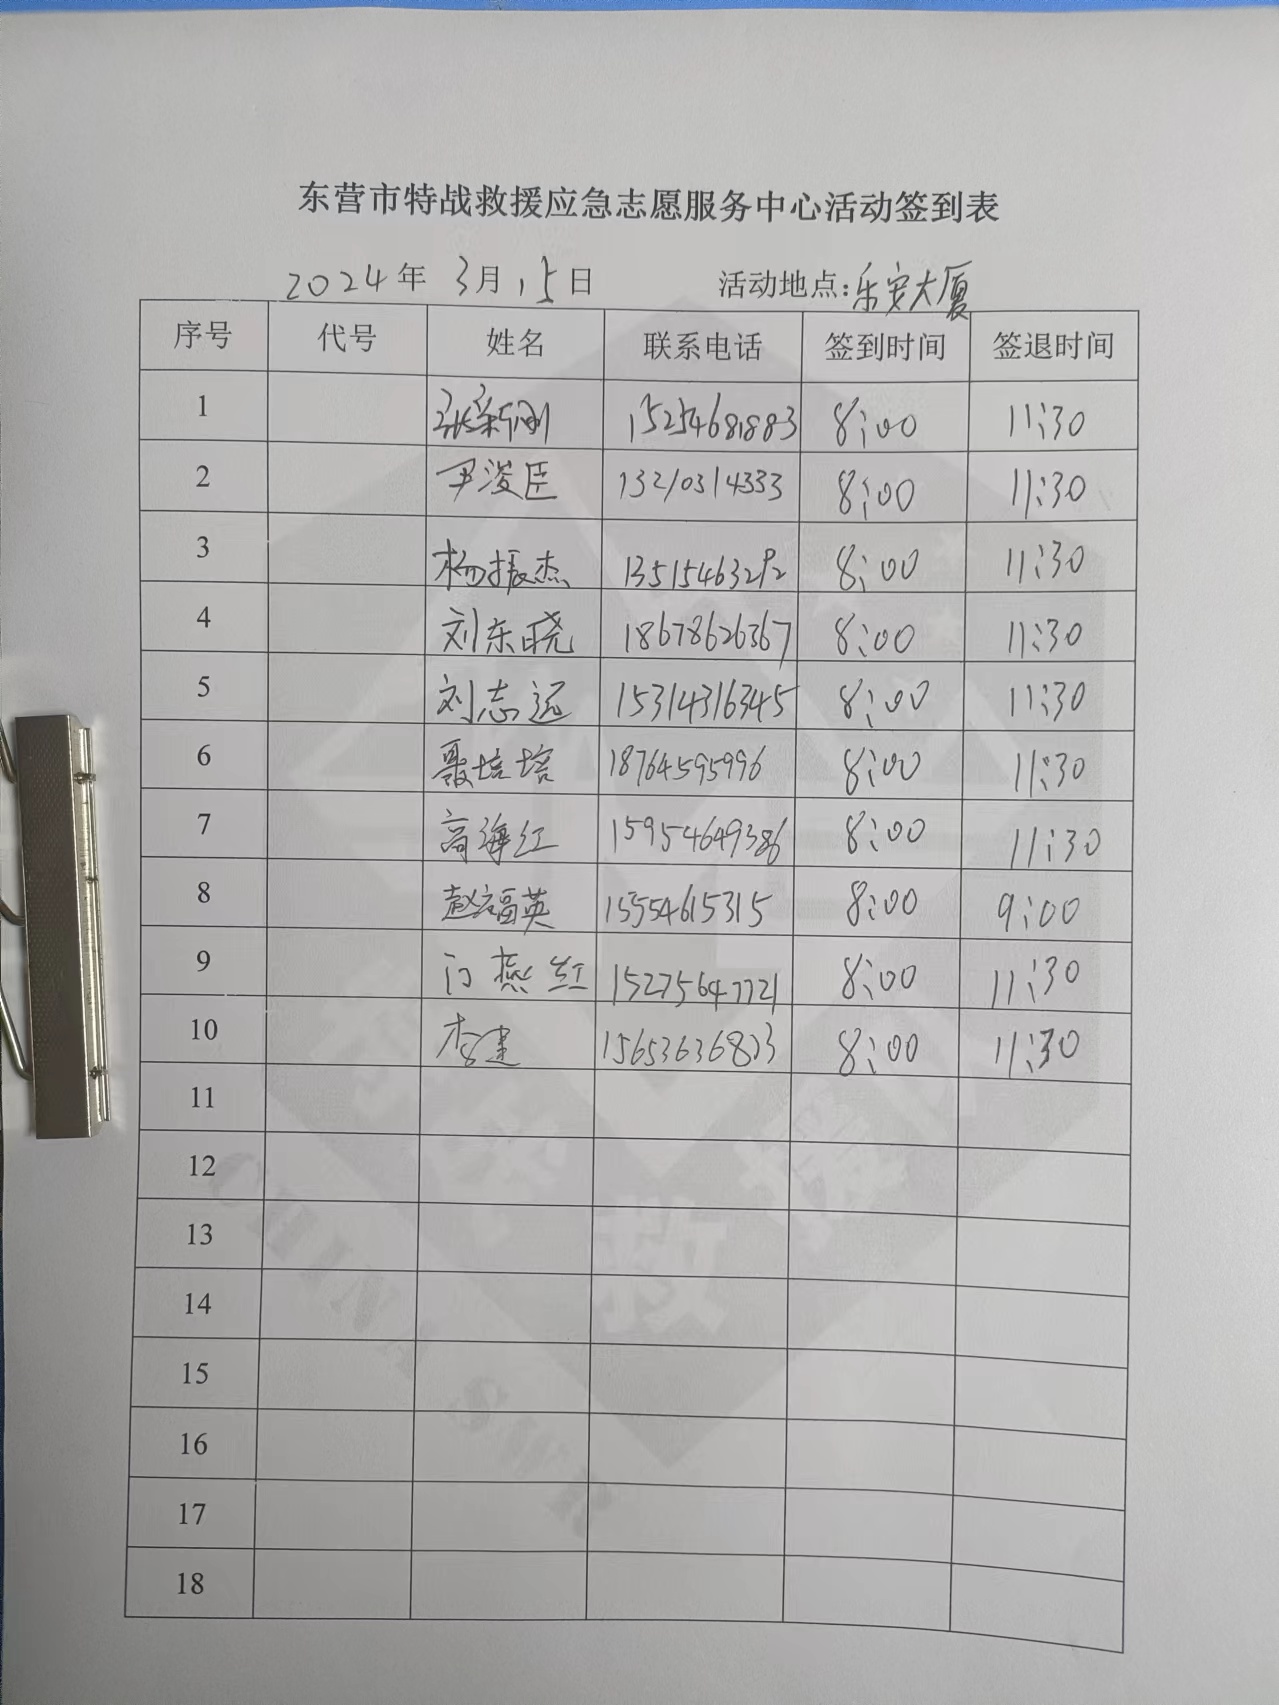 东营市特战救援应急志愿服务中心活动签到表
2024年 3月 15日 活动地点:乐安大厦
序号 代号 姓名 联系电话 签到时间 签退时间
1 张新刚 15254681883 8:00 11:30
2 尹浚臣 13210314333 8:00 11:30
3 杨振杰 13515463292 8:00 11:30
4 刘东晓 18678626367 8:00 11:30
5 刘志远 15314316345 8:00 11:30
6 聂培培 18764595996 8:00 11:30
7 高海红 15954649386 8:00 11:30
8 赵福英 15554615315 8:00 9:00
9 门燕红 15275647721 8:00 11:30
10 李建 8:00 11:30
11
12
13
14
15
16
17
18
特战救援
CHINA SWR